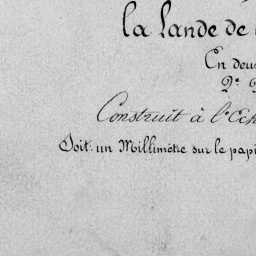 la Lande de
En deux
2e
Construit à l'Ech
Soit un Millimètre sur le papi